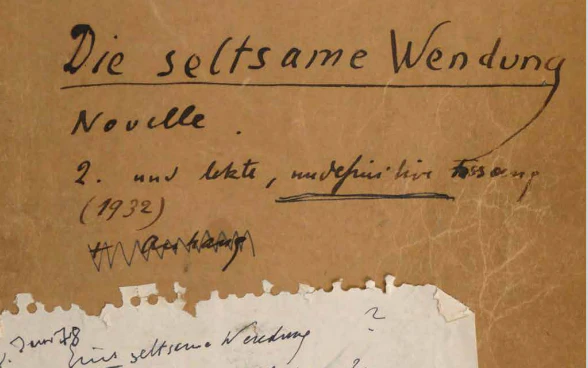 Die seltsame Wendung
Novelle.
2. und letzte, undefinitive Fassung
(1932)
+ Anhang
?
Juni 78
Eine seltsame Wendung